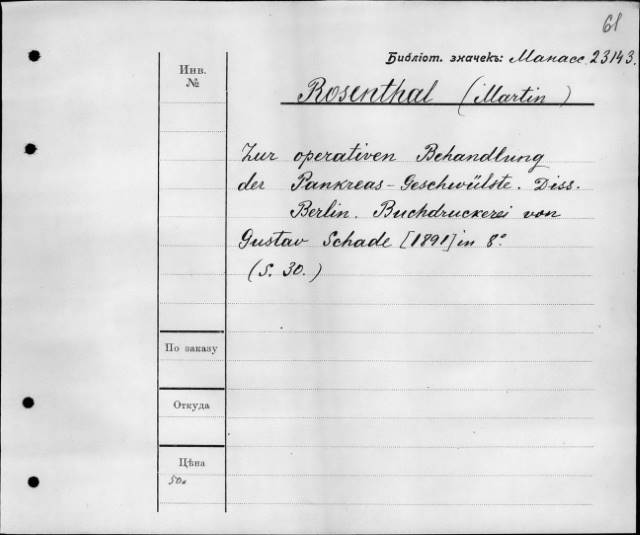 61
Библіот. значекъ: Манасс. 23143.
Инв.
№
Rosenthal (Martin)
Zur operativen Behandlung
der Pankreas-Geschwülste. Diss.
Berlin. Buchdruckerei von
Gustav Schade [1891] in 8°
(S. 30.)
По заказу
Откуда
Цѣна
50к